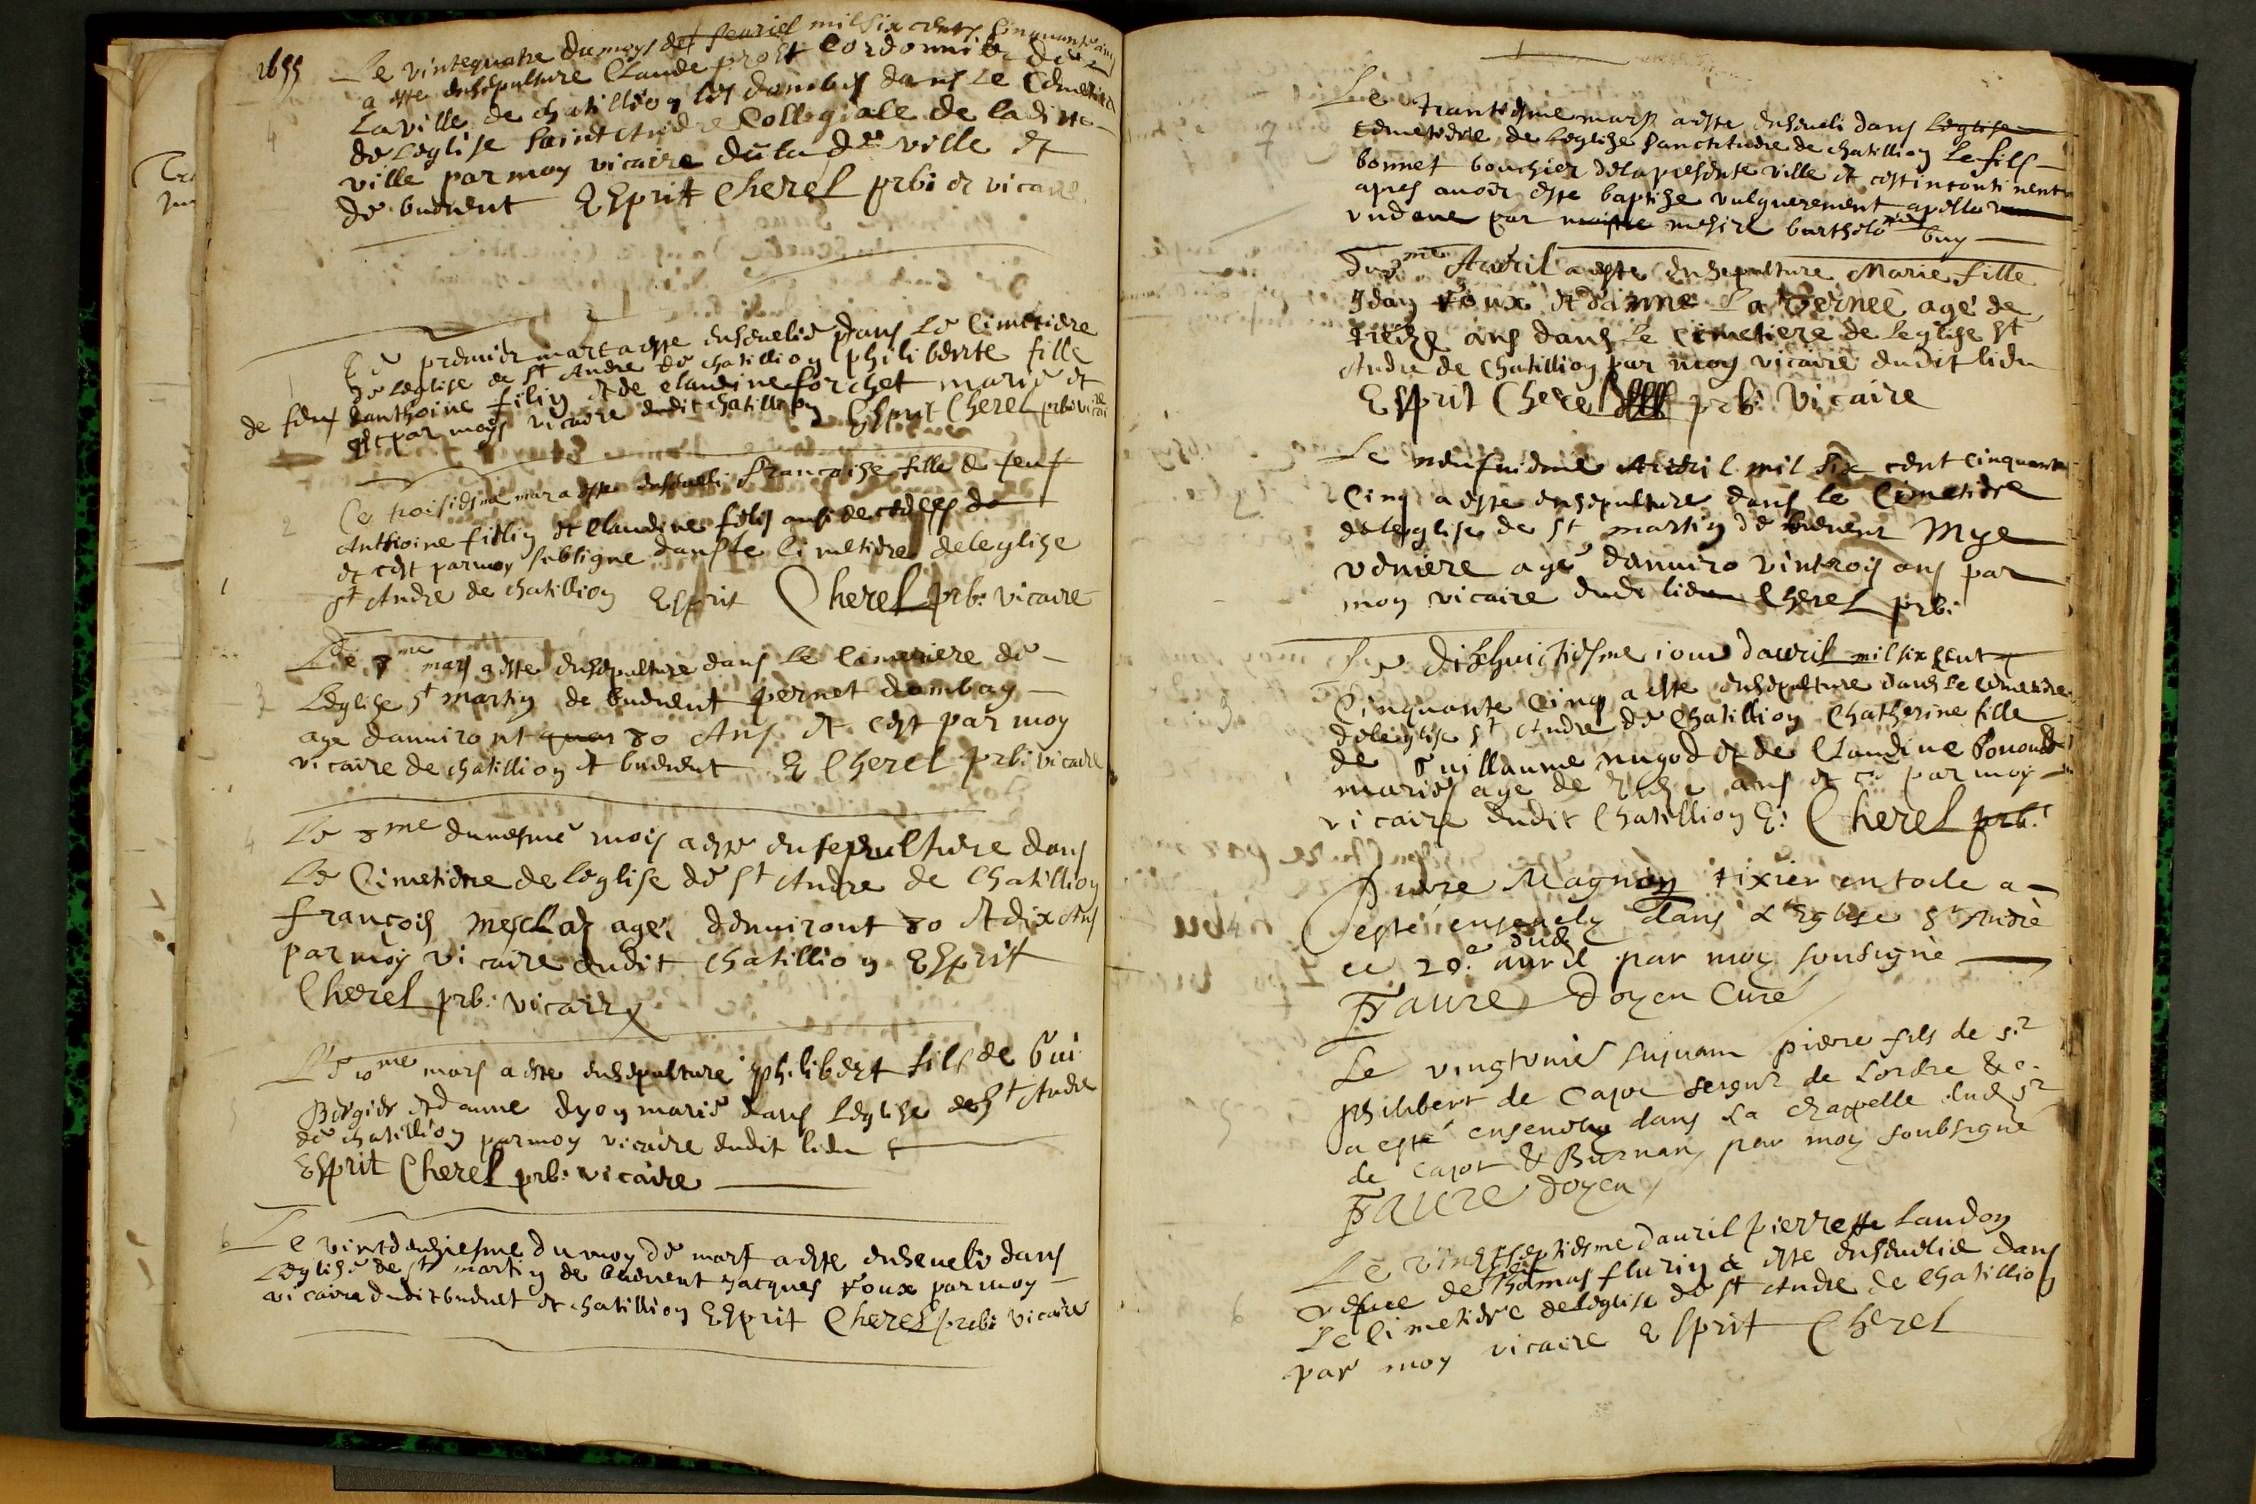 1655
Le vintequatre du moys de feuriel mil six cents cinquante cinq
a este ensepulture Claude prost Cordonnier de
La ville de chatillion les dombes dans le Cemetiere
de Leglise saint Andre Collegiale de laditte
ville par moy vicaire de lade ville et
de buenent Esprit Cherel prbi et vicaire
Le premier mars a este ensevelie dans le Cimetiere
de Leglise de st Andre de chatillion philiberte fille
de feu danthoine filiy et de claudine forchet marie et
par moy vicaire dudit chatillion Esprit Cherel prbi vicaire
Ce troisiesme mar a este enseveli francoise fille de feuf
Anthoine filliy et Claudine
et cest par moy subsigne dans le Cimetiere de leglise
st Andre de chatillion Esprit Cherel prb: vicaire
Le 7me mars a este ensepulture dans le Cimetiere de
Leglise st martin de buenent pernet dambay
age dauuiront 80 Ans et cest par moy
vicaire de chatillion et buenent E Cherel prbi vicaire
Le 8me du mesme mois a este ensepulture dans
Le Cimetiere de leglise de st Andre de Chatillion
francois mesclaz age denuiront 80 et dix Ans
par moy vicaire dudit chatillion Esprit
Cherel prb: vicaire
Le 10me mars a este ensepulture philibert fils de Gui
Bergier et danne dyon marie dans leglise de st Andre
de chatillion par moy vicaire dudit lieu
Esprit Cherel prb: vicaire
Le vintdeusiesme du moy de mars a este enseueli dans
Leglise de st martin de buenent Jacques Foux par moy
vicaire dudit buenent et chatillion Esprit Cherel prbi vicaire
Le trantiesme mars a este enseueli dans leglise
cemetiere de leglise sanct Andre de chatillion le fils
bonnet bouchier de la presente ville et cest incontinent
apres auoir este baptize vulguerement apelle
undone par maistre mesire bartholome buy
du 3me Auril a este ensepulture Marie fille
Jdan Foux et danne La Vernee age de
treize ans dans le cimetiere de leglise st
Andre de Chatillion par moy vicaire dudit lieu
Esprit Cherel prb: vicaire
Le neufuieme Auril mil six cent cinquante
Cinq a este ensepulture dans le Cimetiere
de leglise de st martin de buenent Mye
Veniere age danuiro vintrois ans par
moy vicaire dudi lieu Cherel prbi
Le dixhuictiesme iour dauril mil six cent
Cinquante Cinq a este ensepulture dans le cemetiere
de leglise st Andre de Chatillion Chatherine fille
de Guillaume nugod et de Claudine
maries age de ans et ce par moy
vicaire dudit Chatillion E: Cherel prb:
Pierre Magnon tixier en toile a
esté enseuely dans L'Eglise St Andre
ce 20e dud auril par moy sousigné
Faure Doyen Curé
Le vingtunie suiuam pierre fils de sr
philibert de Cajot seignr de Lordre &c.
a esté enseuely dans La Chappelle dud sr
de Cajot & Burnan, par moy soubsigné
Faure doyen
Le vingtseptiesme dauril Pierrette Laudon
vefue de Thomas fluriy a este enseuelie dans
Le Cimetiere de leglise de st Andre de Chatillion
par moy vicaire Esprit Cherel